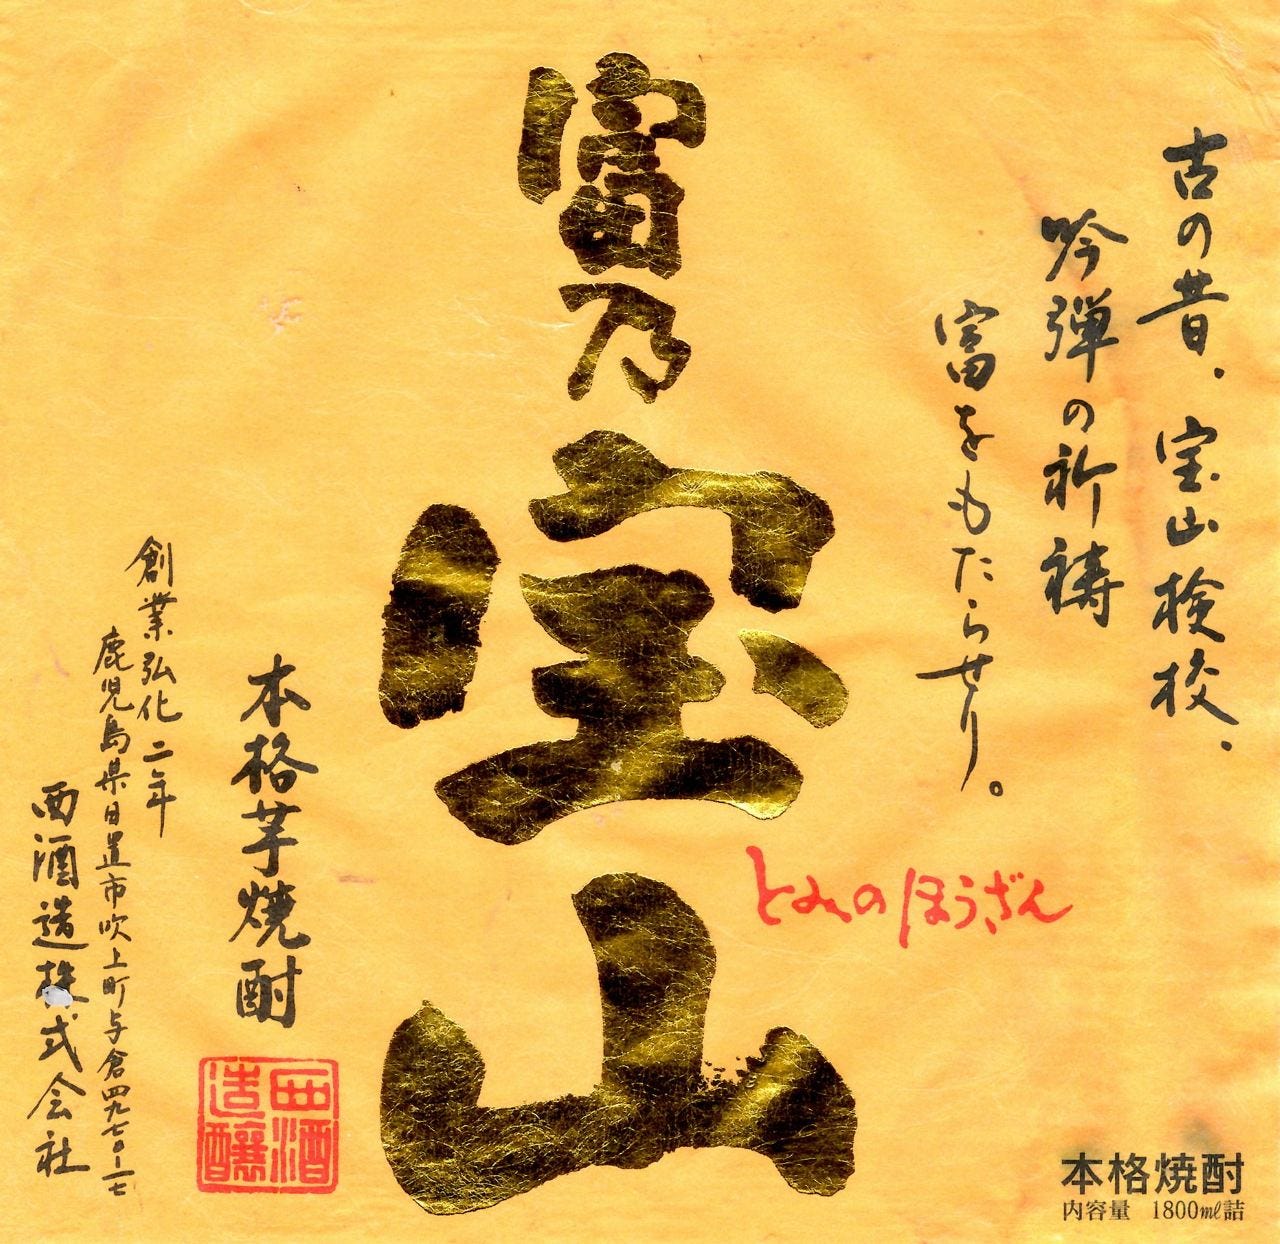 古の昔、宝山検校、
吟弾の祈祷
富をもたらせり。
富乃宝山
とみのほうざん
本格芋焼酎
創業弘化二年
鹿児島県日置市吹上町与倉四九七〇-一七
西酒造株式会社
西酒造醸
本格焼酎
内容量 1800㎖詰